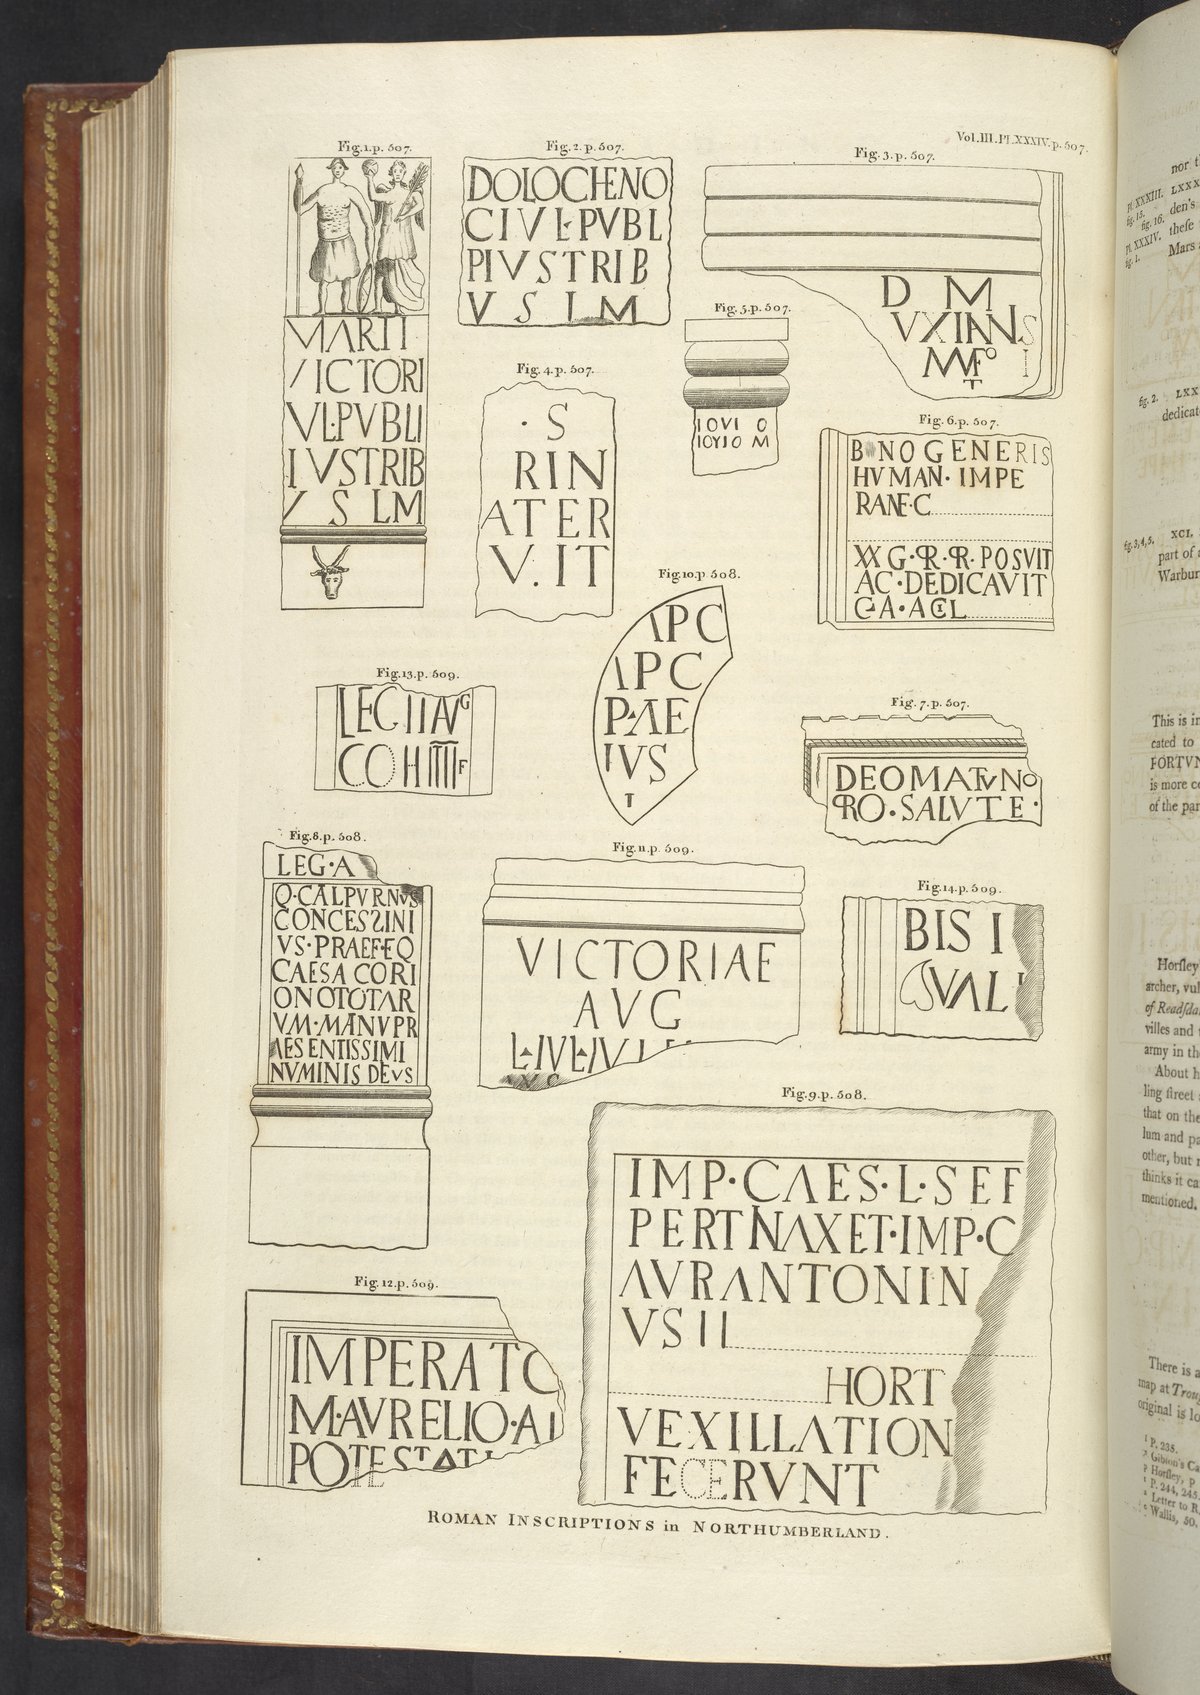 Vol.III.Pl.XXXIV.p.507.
Fig.1.p.507.
MARTI
VICTORI
VL·PVBLI
IVSTRIB
V S LM
Fig.2.p.507.
DOLOCHENO
CIVL·PVBL
PIVSTRIB
V S LM
Fig.3.p.507.
D M
VXIANIS
Fig.5.p.507.
IOVI O
IOVIO M
Fig.4.p.507.
· S
RIN
ATER
V.IT
Fig.6.p.507.
B NO GENERIS
HVMAN· IMPE
RANE·C
XX G·R·R·POSVIT
AC·DEDICAVIT
Fig.10.p.508.
APC
APC
PAE
IVS
T
Fig.13.p.509.
LEG II AVG
COH IIII F
Fig.7.p.507.
DEOMATVNO
PRO·SALVTE·
Fig.8.p.508.
LEG·A
Q·CALPVRNVS
CONCESSINI
VS·PRAEF·EQ
CAESA CORI
ONOTOTAR
VM·MANVPR
AESENTISSIMI
NVMINIS DEVS
Fig.11.p.509.
VICTORIAE
AVG
Fig.14.p.509.
BIS I
VAL
Fig.9.p.508.
IMP·CAES·L·SEF
PERTNAXET·IMP·C
AVRANTONIN
VSII
HORT
VEXILLATION
FECERVNT
Fig.12.p.509.
IMPERATO
M·AVRELIO·A
POTESTATI
ROMAN INSCRIPTIONS in NORTHUMBERLAND.
nor t
Pl. XXXIII.
fig. 15.
LXXX
fig. 16.
den's
Pl. XXXIV.
these
fig. 1.
Mars
fig. 2.
LXX
dedicat
fig. 3, 4, 5.
XCI.
part of
Warbur
This is in
cated to
FORTVN
is more co
of the par
Horsley
archer, vul
of Readsda
villes and
army in the
About h
ling street
that on the
lum and pa
other, but
thinks it ca
mentioned.
There is a
map at Trou
original is lo
P. 238.
Gibson's Ca
Horsley, p
P. 244, 245.
Letter to R.
Wallis, 50.